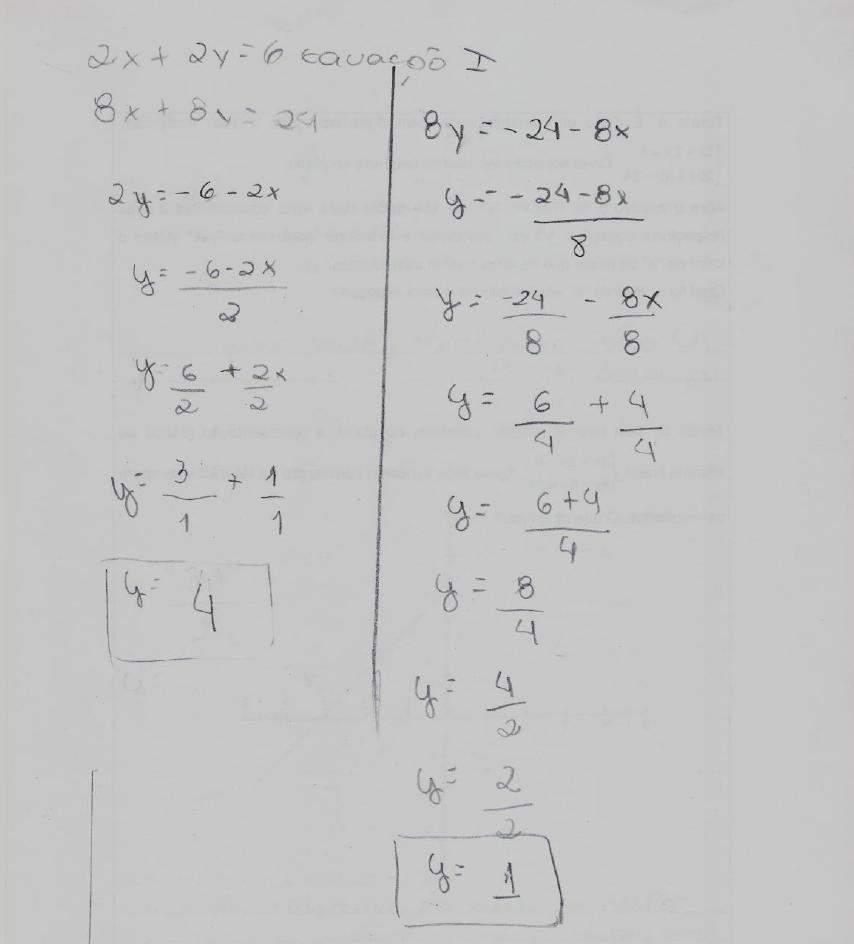 2x + 2y = 6 Equação I
8x + 8y = 24
2y = -6 - 2x
y = -6-2x / 2
y = 6/2 + 2x/2
y = 3/1 + 1/1
y = 4
8y = -24 - 8x
y = - 24-8x / 8
y = -24/8 - 8x/8
y = 6/4 + 4/4
y = 6+4 / 4
y = 8/4
y = 4/2
y = 2/2
y = 1